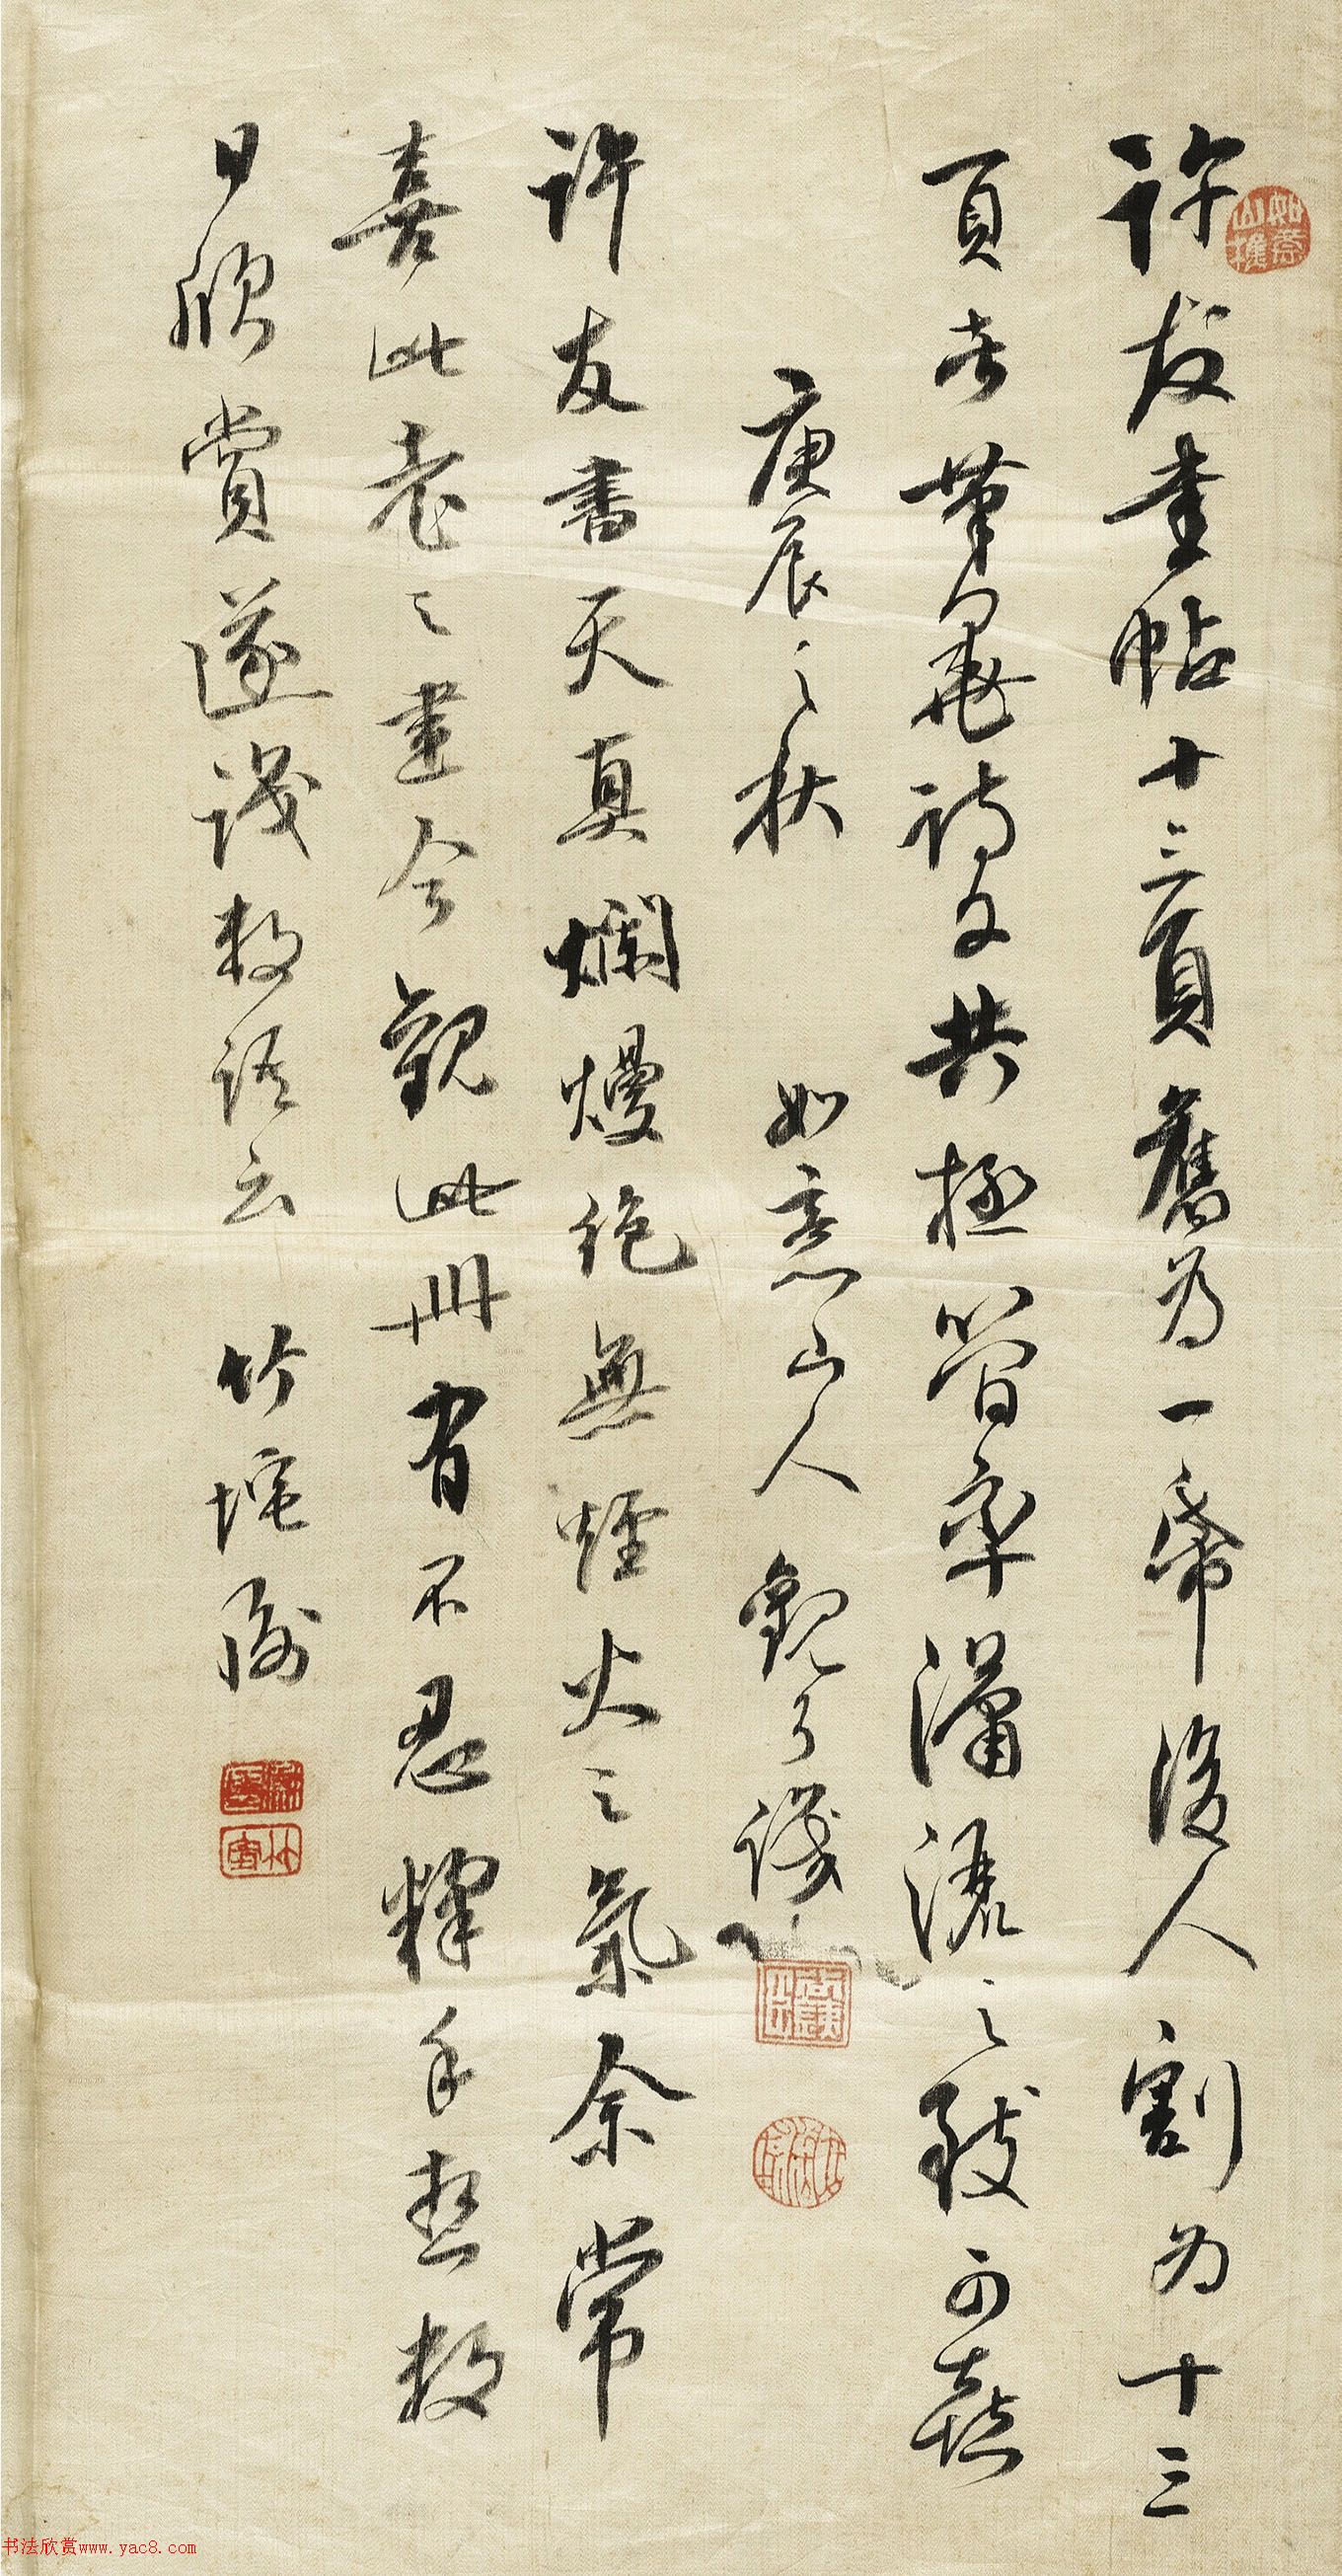 許友書帖十三頁舊為一帋後人割為十三
頁者筆墨詩文共極簡率瀟灑之致可喜
庚辰之秋 如意山人觀了識
許友書天真爛熳絕無煙火之氣余常
喜此老之畫今觀此冊有不忍釋手愁數
日欣賞遂識數語云 竹坨
书法欣赏www.yac8.com